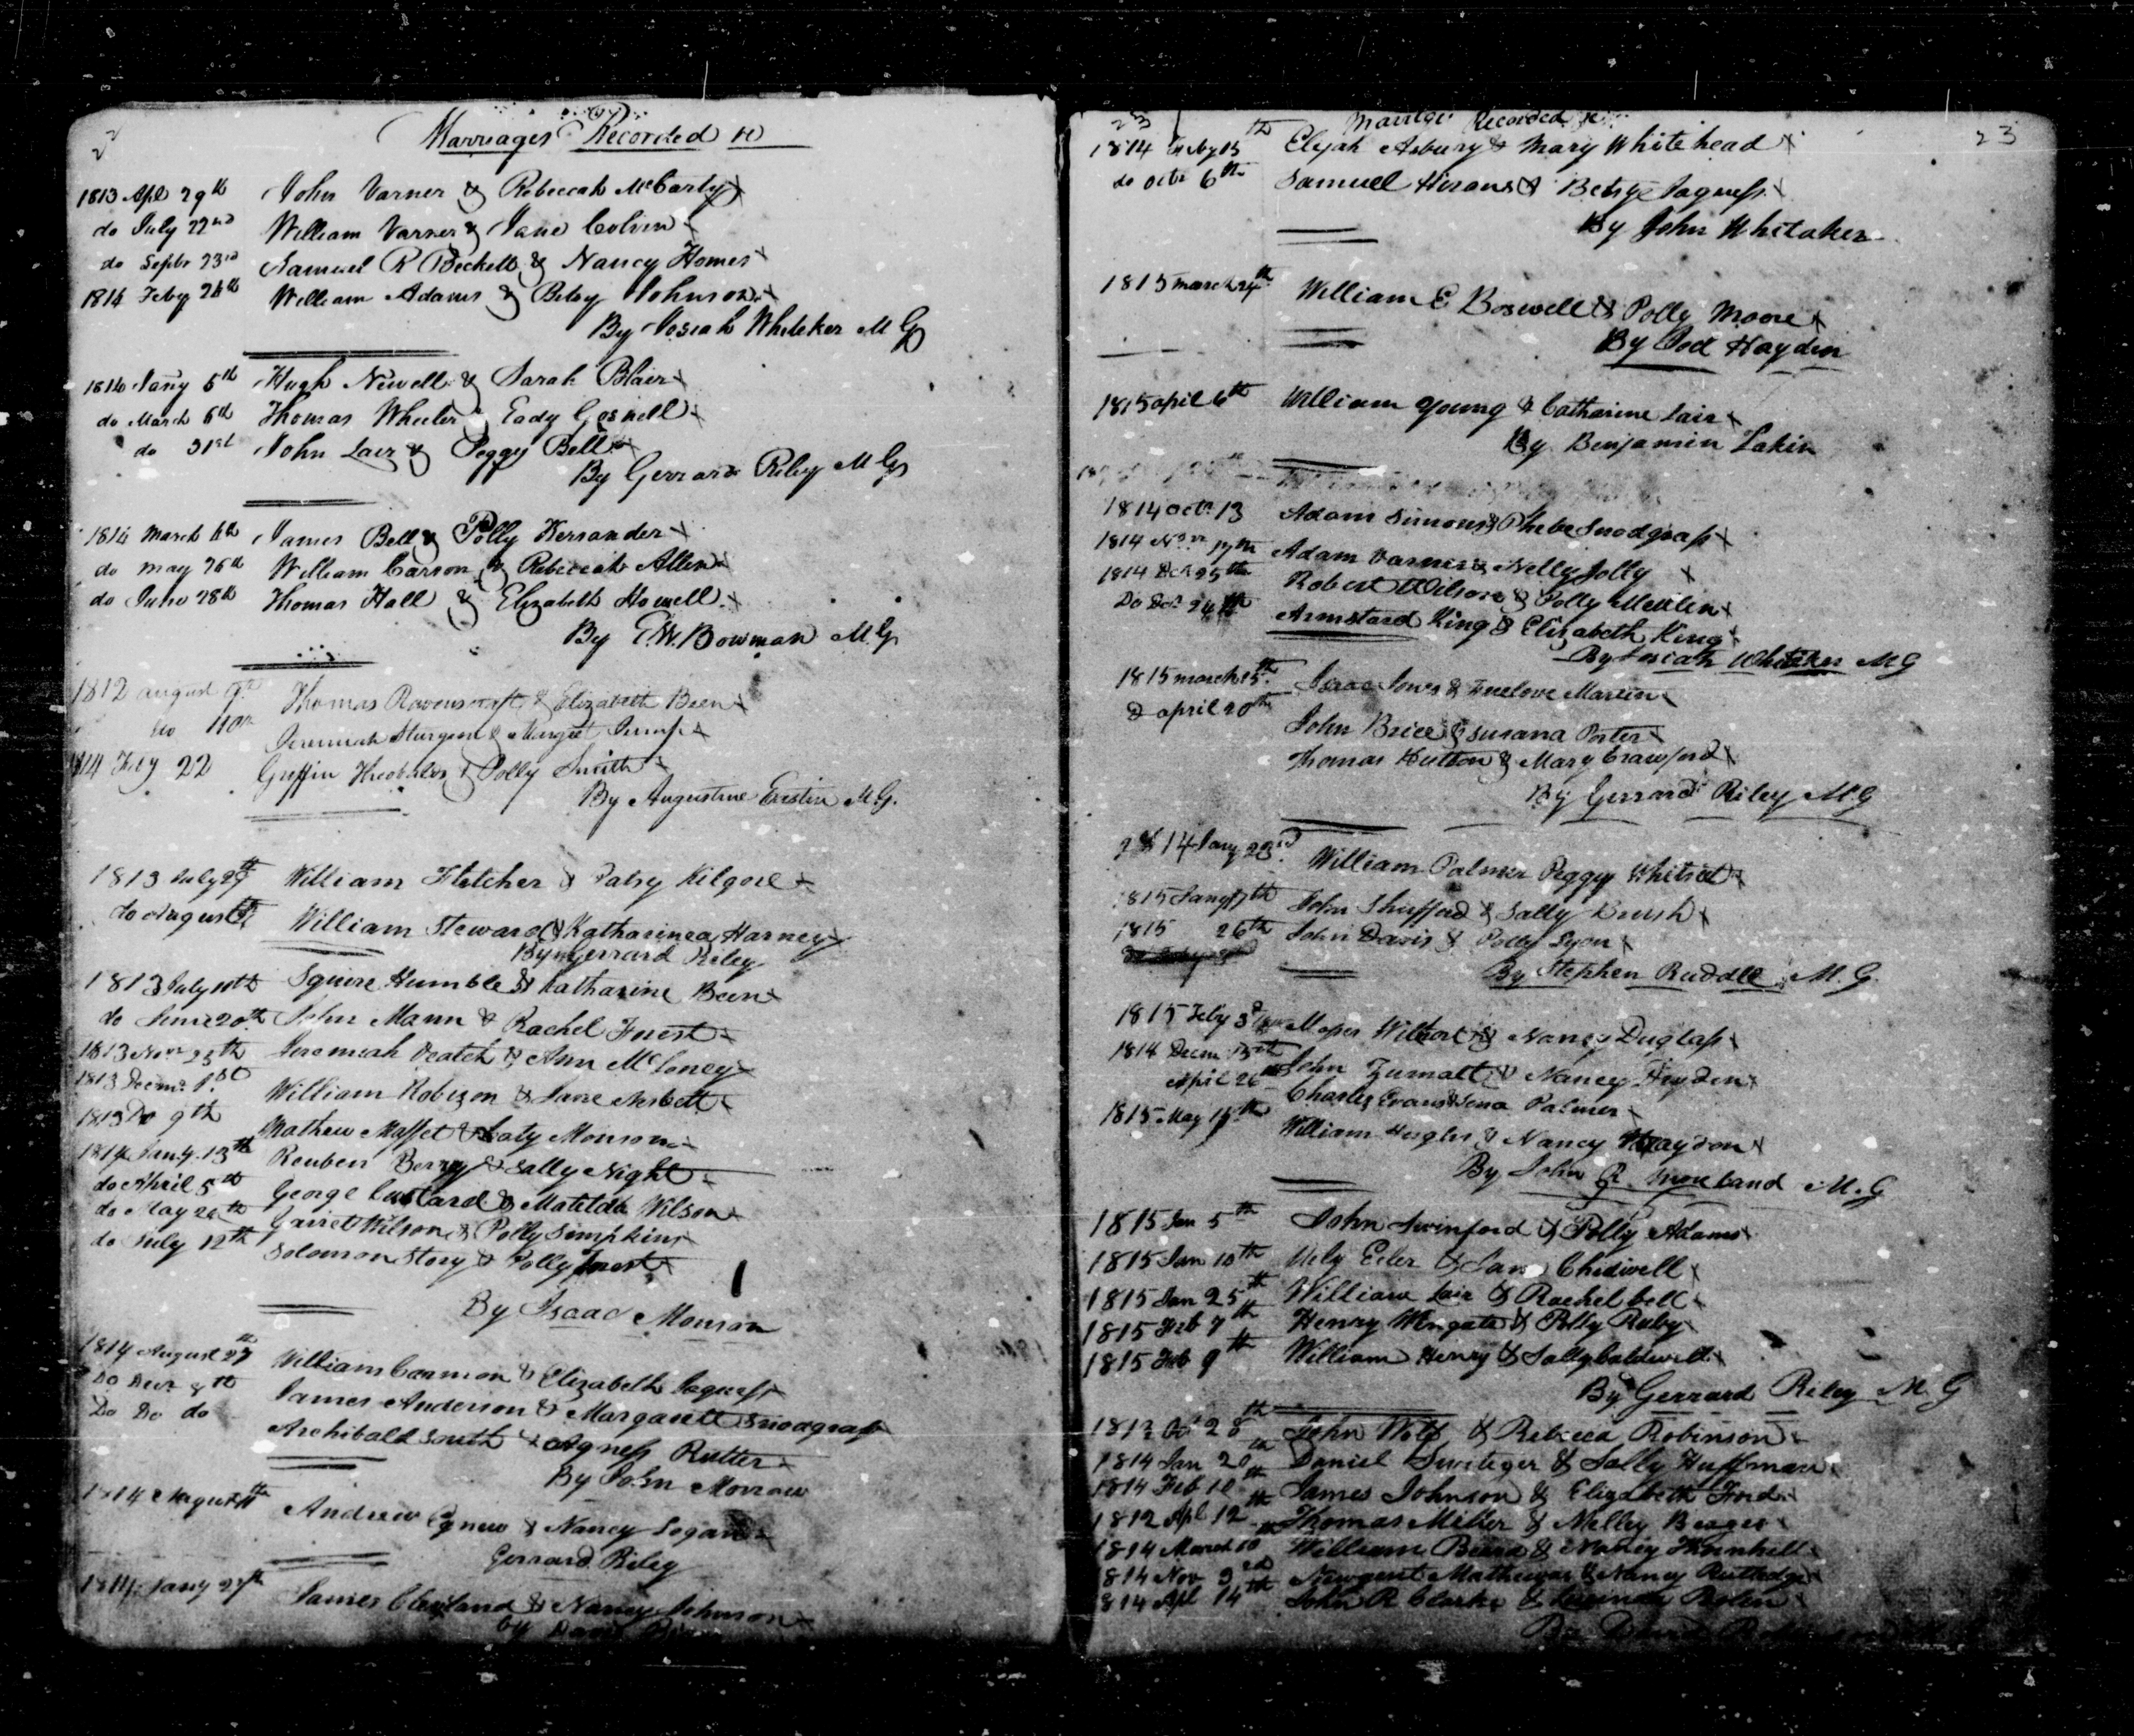 2
Marriages Recorded &c
1813 Apl 29th John Varner & Rebeccah McCarty x
do July 22nd William Varner & Jane Colvin x
do Septr 23rd Samuel R Beckett & Nancy Homes x
1814 Feby 24th William Adams & Betsy Johnson x
By Josiah Whitaker M G
1814 Jany 6th Hugh Newell & Sarah Blair x
do March 6th Thomas Wheeler & Eady Gosnell x
do 31st John Lair & Peggy Bell x
By Gerrard Riley M G
1814 March 6th James Bell & Polly Kersander x
do may 26th William Carson & Rebeccah Allen x
do June 28th Thomas Hall & Elizabeth Howell x
By T.W. Bowman M G
1812 august 9th Thomas Ravenscraft & Elizabeth Been x
do Jeremiah Sturgeon & Margret Jump x
1814 Feby 22 Griffin Theobalds & Polly Smith x
By Augustine Eastin M.G.
1813 July 29th William Fletcher & Patsy Kilgore x
do August William Steward & Katharinea Harney x
By Gerrard Riley
1813 July 10th Squire Humble & Katharine Been x
do June 20th John Mann & Rachel Furest x
1813 Novr 25th Jeremiah Veatch & Ann McLoney x
1813 Decmr 1.st William Robizon & Jane Nesbett x
1813 Do 9th Mathew Maffet & Caty Monson x
1814 Jany. 13th Reuben Berry & Sally Night x
do April 5th George Custard & Matilda Wilson x
do May 26th Garret Wilson & Polly Simpkins x
do July 12th Solomon Story & Polly Furest x
By Isaac Monson
1814 August 27th William Cannon & Elizabeth Jaquess x
Do Decr 8th James Anderson & Margarett Snodgrass
Do Do do Archibald South & Agness Rutter x
By John Morrow
1814 August Andrew Agnew & Nancy Logan x
Gerrard Riley
1814 Jany 27th James Cleveland & Nancy Johnson x
by David
23 Marriages Recorded &c 23
1814 Feby 15th Elijah Asbury & Mary Whitehead x
do octr 6th Samuel Hirons & Betsy Jaquess x
By John Whitaker
1815 march 24th William E Boswell & Polly Moore x
By Joel Hayden
1815 april 6th William Young & Catharine Lair x
By Benjamin Lakin
1814 octr 13 Adam Simons & Phebe Snodgrass x
1814 Novr 17th Adam Varner & Nelly Jolly x
1814 Dec 25th Robert Wilson & Polly Meklin x
Do Dec 24th Armstard King & Elizabeth King x
By Josiah Whitaker M G
1815 march 15th Isaac Jones & Truelove Martin x
D april 20th John Brice & Susana Porter x
Thomas Hutton & Mary Crawford x
By Gerrard Riley M.G
1814 Jany 23rd William Palmer Peggy Whitset x
1815 Jany 17th John Shufford & Sally Brush x
1815 26th John Davis & Polly Lyon x
By Stephen Ruddle M.G.
1815 Feby 3d Moses Wilhort & Nancy Duglass x
1814 Decm 15th John Zumalt & Nancy Hryden x
April 26 Charles Evans & Sena Palmer x
1815 May 15th William Hughes & Nancy Haydon x
By John R. Moreland M.G
1815 Jan 5th John Swinford & Polly Adams x
1815 Jan 10th Uely Eeler & Jane Chidwell x
1815 Jan 25th William Lair & Rachel bell x
1815 Feb 7th Henry Wingate & Polly Ruby x
1815 Feb 9th William Henry & Sally Caldwell x
By Gerrard Riley M G
1813 Oct 28th John Wolf & Rebecca Robinson x
1814 Jan 20th Daniel Switeger & Sally Huffman x
1814 Feb 10th James Johnson & Elizabeth Ford x
1812 Apl 12th Thomas Miller & Milley x
1814 March 10 William Beard & Nancy Thornhill x
1814 Nov 3rd Newgent Mathewes & Nancy Rutledge x
1814 Apl 14th John R Clarke & x
By David